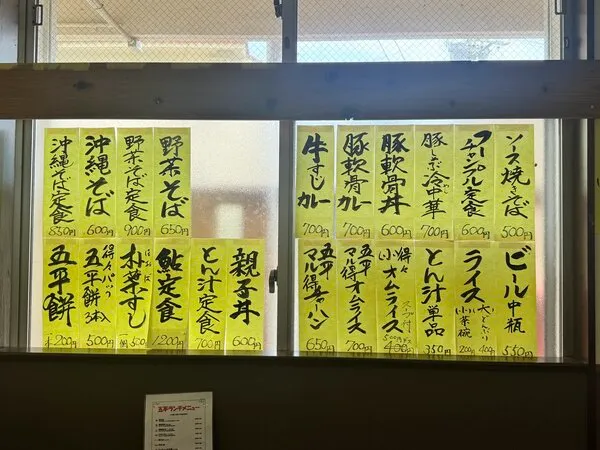 ソース焼きそば
500円
フーチャンプル定食
600円
豚しゃぶ冷中華
700円
豚軟骨丼
600円
豚軟骨カレー
700円
牛すじカレー
700円
野菜そば
650円
野菜そば定食
900円
沖縄そば
600円
沖縄そば定食
850円
ビール中瓶
550円
ライス
(大)どんぶり 400円
(小)茶碗 200円
とん汁単品
350円
得々小オムライス
スープ付
500円
五平マル得オムライス
700円
五平マル得チャーハン
650円
親子丼
600円
とん汁定食
700円
鮎定食
1200円
ほおば
朴葉すし
1個500円
得々パック
五平餅3本入
500円
五平餅
1本200円
五平ランチメニュー